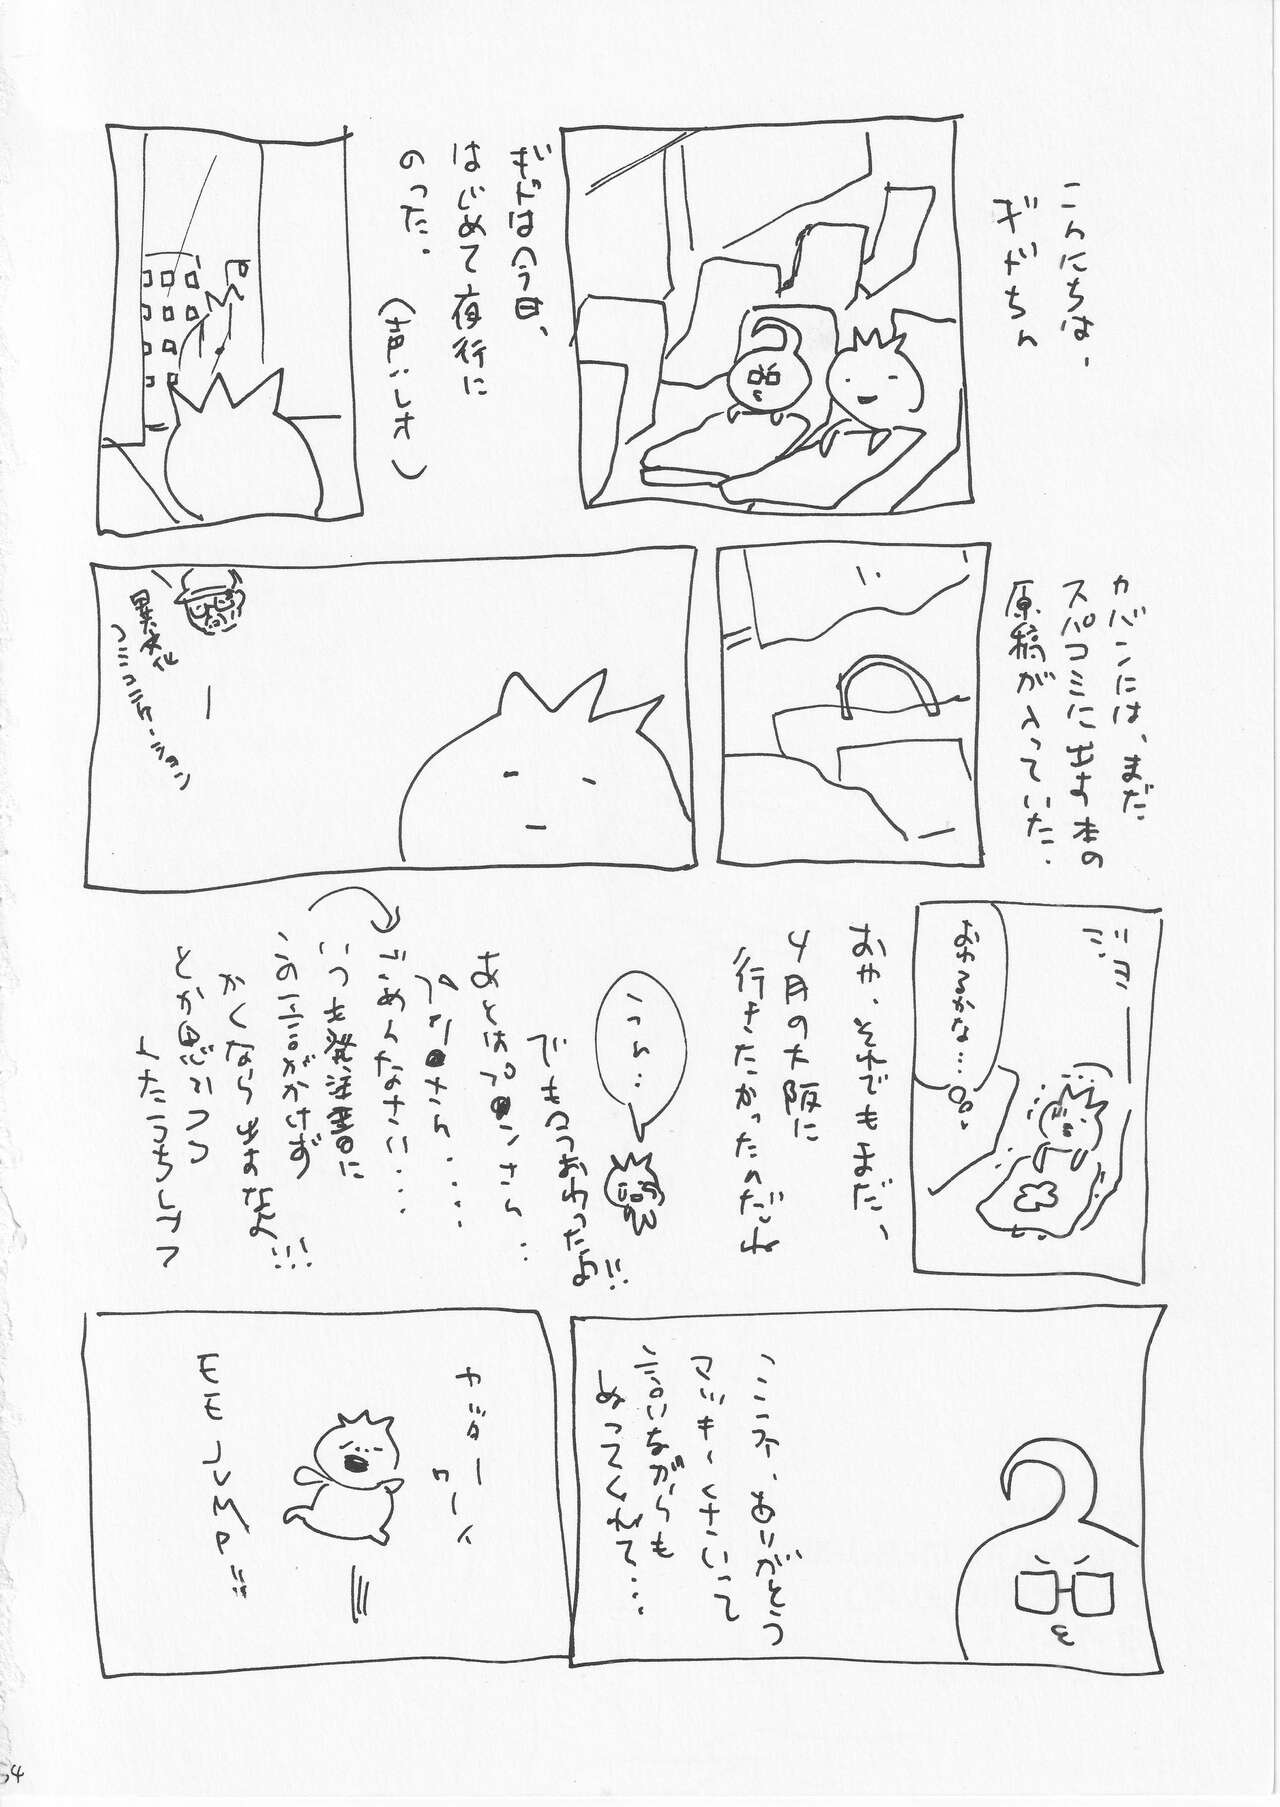 こんにちは、
ギドちん
ギドは今日、
はじめて夜行に
のった。
(声:レオ)
カバンには、まだ
スパコミに出す本の
原稿が入っていた。
異文化
コミュニケーション
ジョー
おわるかな…
おや、それでもまだ、
4月の大阪に
行きたかったのだね
うん…
でもつつおわったよ!!
あとは
さん…
ごめんなさい…
いつも発注書に
この一言がかけず
かくなら出すなよ!!!
とか思いつつ
入たうちしつつ
ココデ、ありがとう
マッキーくさいって
言いながらも
ぬってくれて…
ヤッター
ワーイ
EE JUMP!!
54